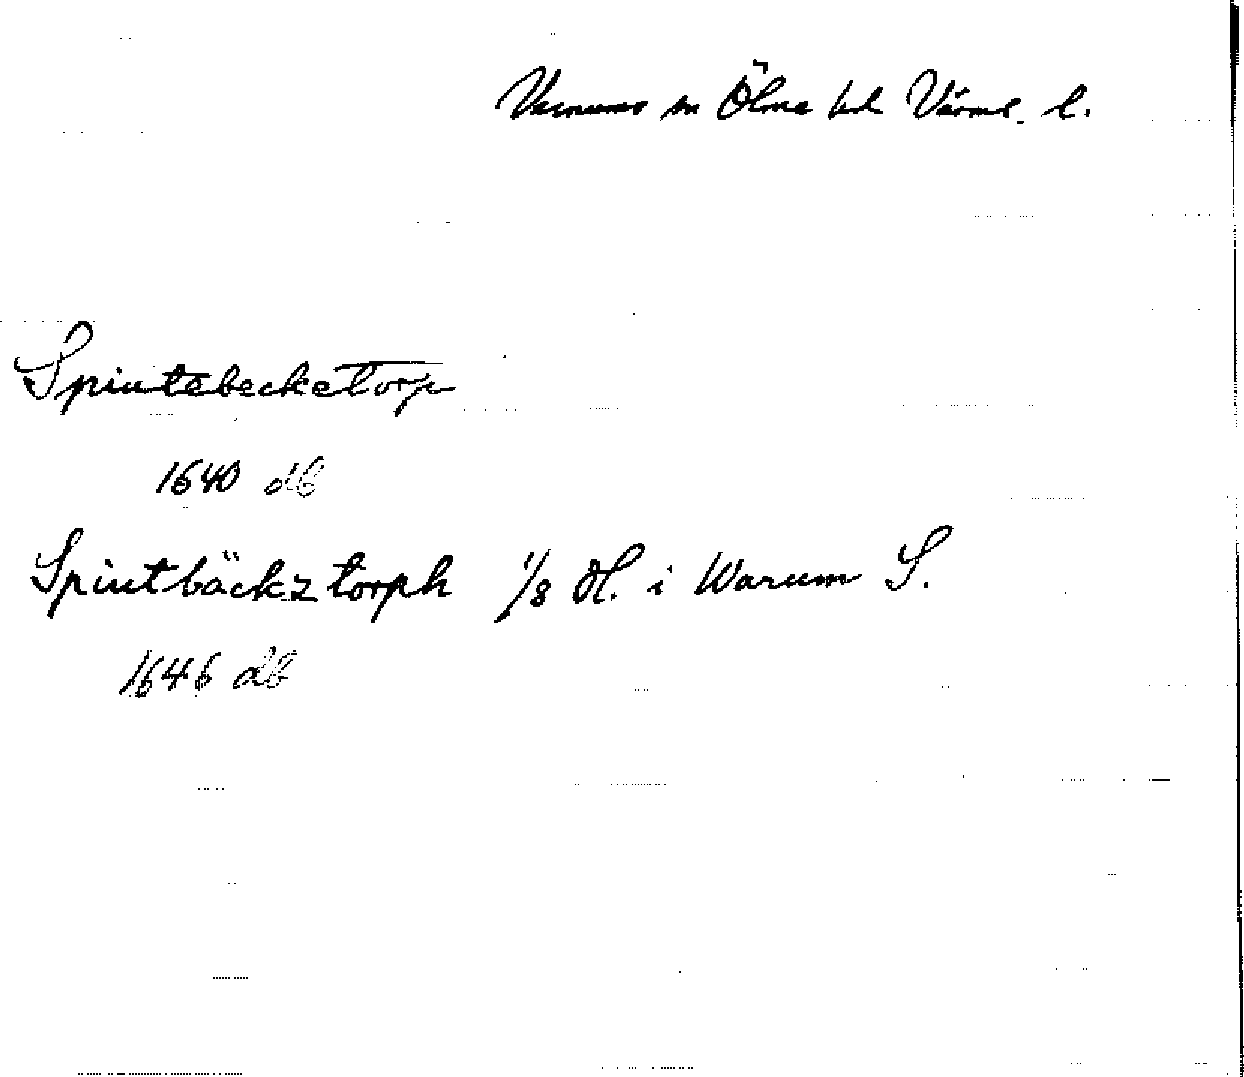 Varnums sn Ölme hd Värml. l.
Spintebecketorp
1640 db
Spintbäckztorph 1/8 H. i Warum S.
1646 db